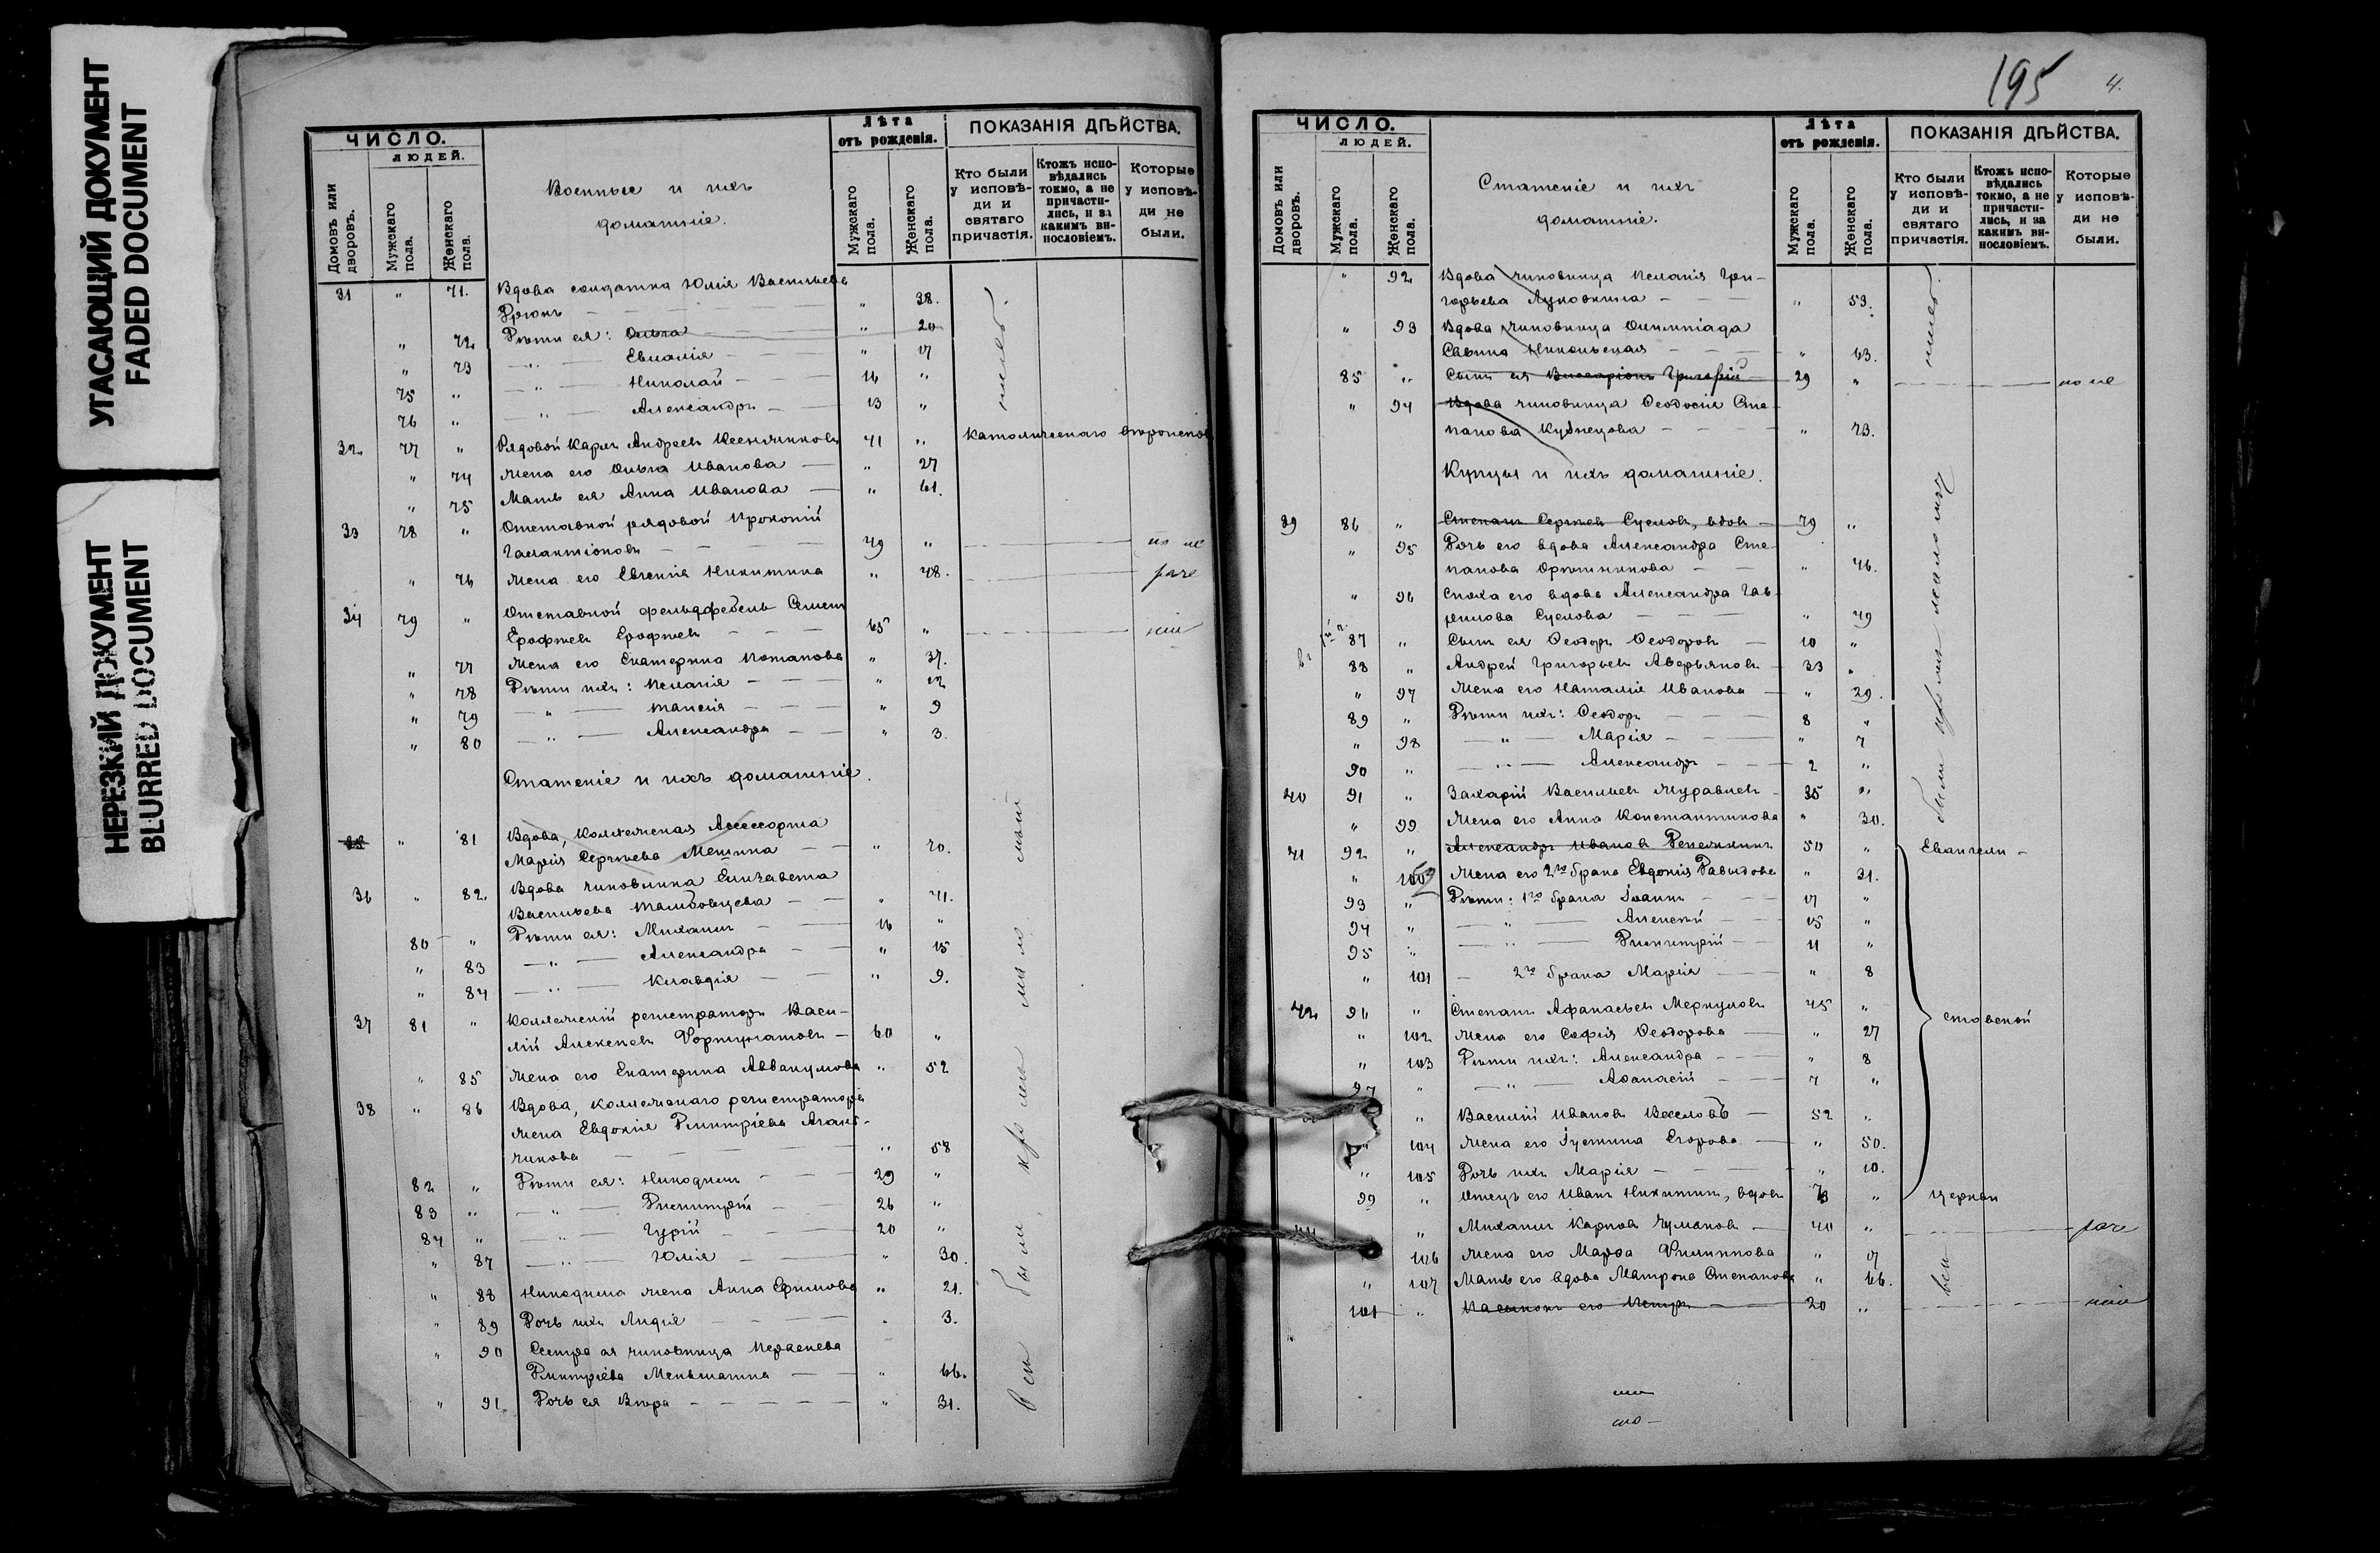 УГАСАЮЩИЙ ДОКУМЕНТ
FADED DOCUMENT
НЕРЕЗКИЙ ДОКУМЕНТ
BLURRED DOCUMENT
ЧИСЛО.
ЛЮДЕЙ.
Домовъ или дворовъ.
Мужскаго пола.
Женскаго пола.
Военные и ихъ
домашніе.
Лѣта
отъ рожденія.
Мужскаго пола.
Женскаго пола.
ПОКАЗАНІЯ ДѢЙСТВА.
Кто были у исповѣ-ди и святаго причастія.
Ктожъ испо-вѣдались токмо, а не причасти-лись, и за какимъ ви-нословіемъ.
Которые у исповѣ-ди не были.
31 " 71. Вдова солдатка Юлія Васильева
" 38.
" 72 Дѣти ея: Ольга " 20
" 73 " Евлалія " 17
75 " " Николай 16 "
76 " " Александръ 13 "
32 77 " Рядовой Карлъ Андреевъ 41 " католическаго
" 74 Жена его Ольга Иванова " 27
" 75 Мать ея Анна Иванова " 61.
33 78 " Отставной рядовой Прокопій
Галактіоновъ 49 "
" 76 Жена его Евгенія Никитина " 48.
34 79 " Отставной фельдфебель
Ерофѣевъ Ерофѣевъ 65 "
" 77 Жена его Екатерина Потапова " 37.
" 78 Дѣти ихъ: Пелагія " 12
" 79 " Таисія " 9
" 80 " Александра " 3.
Статскіе и ихъ домашніе.
35 " 81 Вдова, Коллежская Ассесорша
Марія Сергѣева " 70.
36 " 82. Вдова чиновника Елизавета
Васильева Тамбовцева " 41.
80 " Дѣти ея: Михаилъ 16 "
" 83 " Александра " 15
" 84 " Клавдія " 9.
37 81 " Коллежскій регистраторъ Васи-
лій Алексѣевъ Фортунатовъ 60 "
" 85 Жена его Екатерина Аввакумова " 52
38 " 86 Вдова, коллежскаго регистратора
жена Евдокія Дмитріева
" 58
82 " Дѣти ея: Никодимъ 29 "
83 " " Димитрій 26 "
84 " " Гурій 20 "
" 87 " Юлія " 30.
" 88 Никодима жена Анна Ефимова " 21.
" 89 Дочь ихъ Лидія " 3.
" 90 Сестра ея чиновница
Дмитріева Меньшагина " 66.
" 91. Дочь ея Вѣра " 31.
Всѣ были, кромѣ
195 4.
ЧИСЛО.
ЛЮДЕЙ.
Домовъ или дворовъ.
Мужскаго пола.
Женскаго пола.
Статскіе и ихъ
домашніе.
Лѣта
отъ рожденія.
Мужскаго пола.
Женскаго пола.
ПОКАЗАНІЯ ДѢЙСТВА.
Кто были у исповѣ-ди и святаго причастія.
Ктожъ испо-вѣдались токмо, а не причасти-лись, и за какимъ ви-нословіемъ.
Которые у исповѣ-ди не были.
" 92 Вдова чиновница Пелагія Гри-
горьева " 53.
" 93 Вдова чиновница Олимпіада
Саввина Никольская " 63.
85 " Сынъ ея Виссаріонъ 29 "
" 94 Вдова чиновница Ѳеодосія Сте-
панова Кузнецова " 73.
Купцы и ихъ домашніе.
39 86 " Степанъ Сергѣевъ Сусловъ, вдовъ 79 "
" 95 Дочь его вдова Александра Сте-
панова " 46.
" 96 Сноха его вдова Александра Гав-
рилова Суслова " 49
87 " Сынъ ея Ѳеодоръ Ѳеодоровъ 10 "
88 " Андрей Григорьевъ Аверьяновъ 33 "
" 97 Жена его Наталія Иванова " 29.
89 " Дѣти ихъ: Ѳеодоръ 8 "
" 98 " Марія " 7
90 " " Александръ 2 "
40 91 " Захарій Васильевъ Журавлевъ 35 "
" 99 Жена его Анна Константинова " 30.
41 92 " Александръ Ивановъ 50 " Евангели-
" 100 Жена его 2го брака Евдокія Давыдова " 31.
93 " Дѣти: 1го брака Іоаннъ 17 "
94 " " Алексѣй 15 "
95 " " Димитрій 11 "
" 101 2го брака Марія " 8
42 96 " Степанъ Афанасьевъ Меркуловъ 45 " стовской
" 102 Жена его Софія Ѳеодорова " 27
" 103 Дѣти ихъ: Александра " 8
97 " " Аѳанасій 7 "
" Василій Ивановъ Веселовъ 52 "
" 104 Жена его Іустина Егорова " 50.
" 105 Дочь ихъ Марія " 10.
99 " Отецъ его Иванъ Никитинъ, вдовъ " церкви
" Михаилъ Карповъ Чумаковъ 40 "
106 Жена его Марѳа Филиппова " 17
" 107 Мать его вдова Матрона Степанова " 66.
101 " Пасынокъ его Петръ 20 "